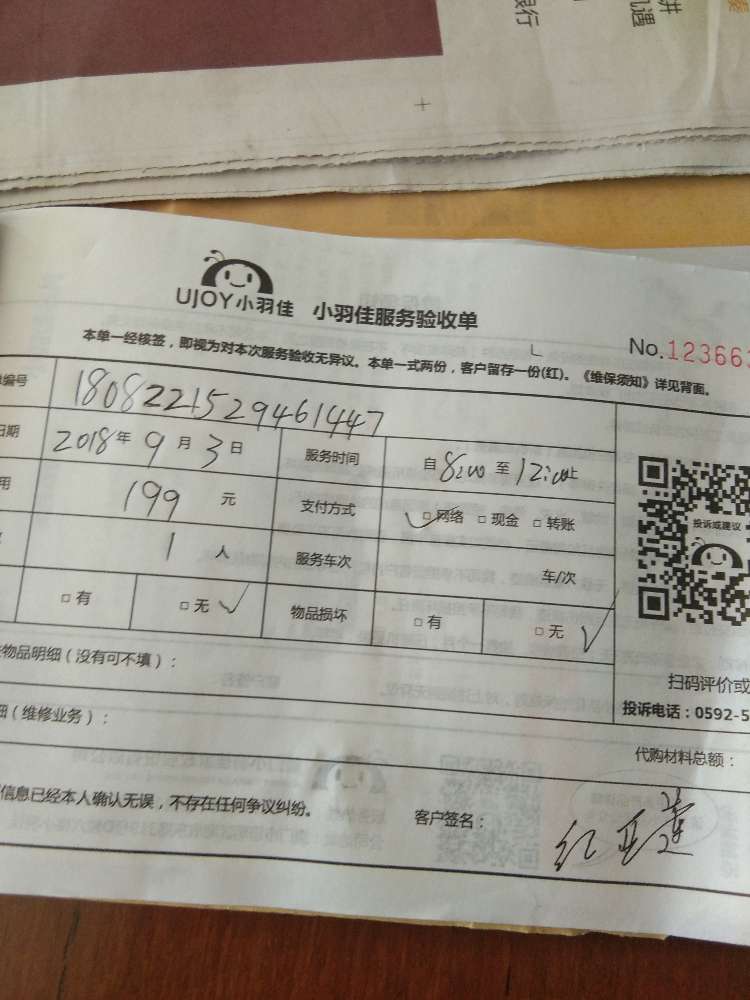 讲
机遇
银行
UJOY小羽佳 小羽佳服务验收单
No.123663
本单一经核签，即视为对本次服务验收无异议。本单一式两份，客户留存一份(红)。《维保须知》详见背面。
编号 1808221529461447
日期 2018年9月3日 服务时间 自8:00至12:00止
用 199元 支付方式 ✓□网络 □现金 □转账
1人 服务车次 车/次
□有 □无✓ 物品损坏 □有 □无✓
投诉或建议
扫码评价或
投诉电话：0592-5
物品明细（没有可不填）：
细（维修业务）：
代购材料总额：
信息已经本人确认无误，不存在任何争议纠纷。 客户签名：